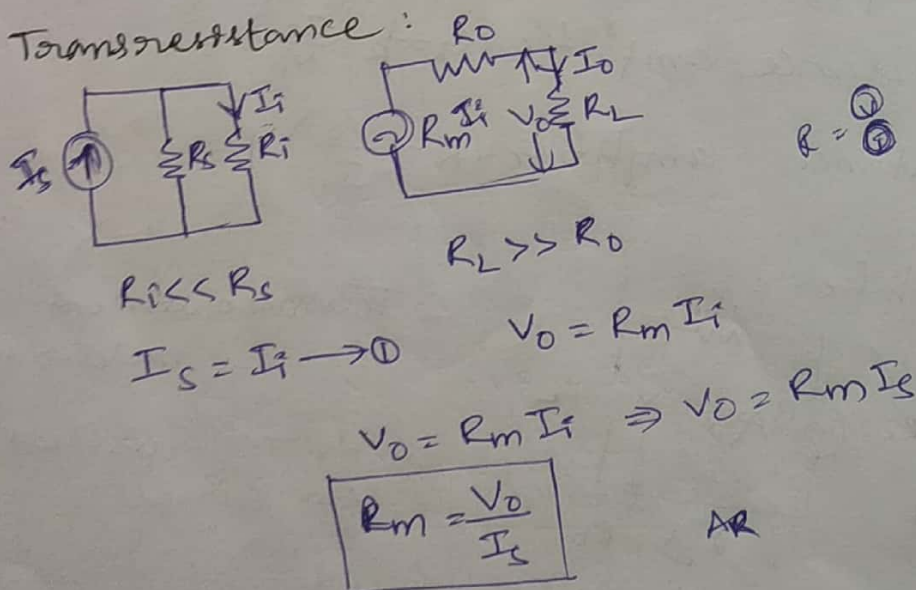 Transresistance :
Is Rs Ii Ri
Ro Io
RmIi Vo RL
R = V/I
Ri<< Rs
RL >> Ro
Is = Ii → ①
Vo = Rm Ii
Vo = Rm Ii ⇒ Vo = Rm Is
Rm = Vo/Is
AR